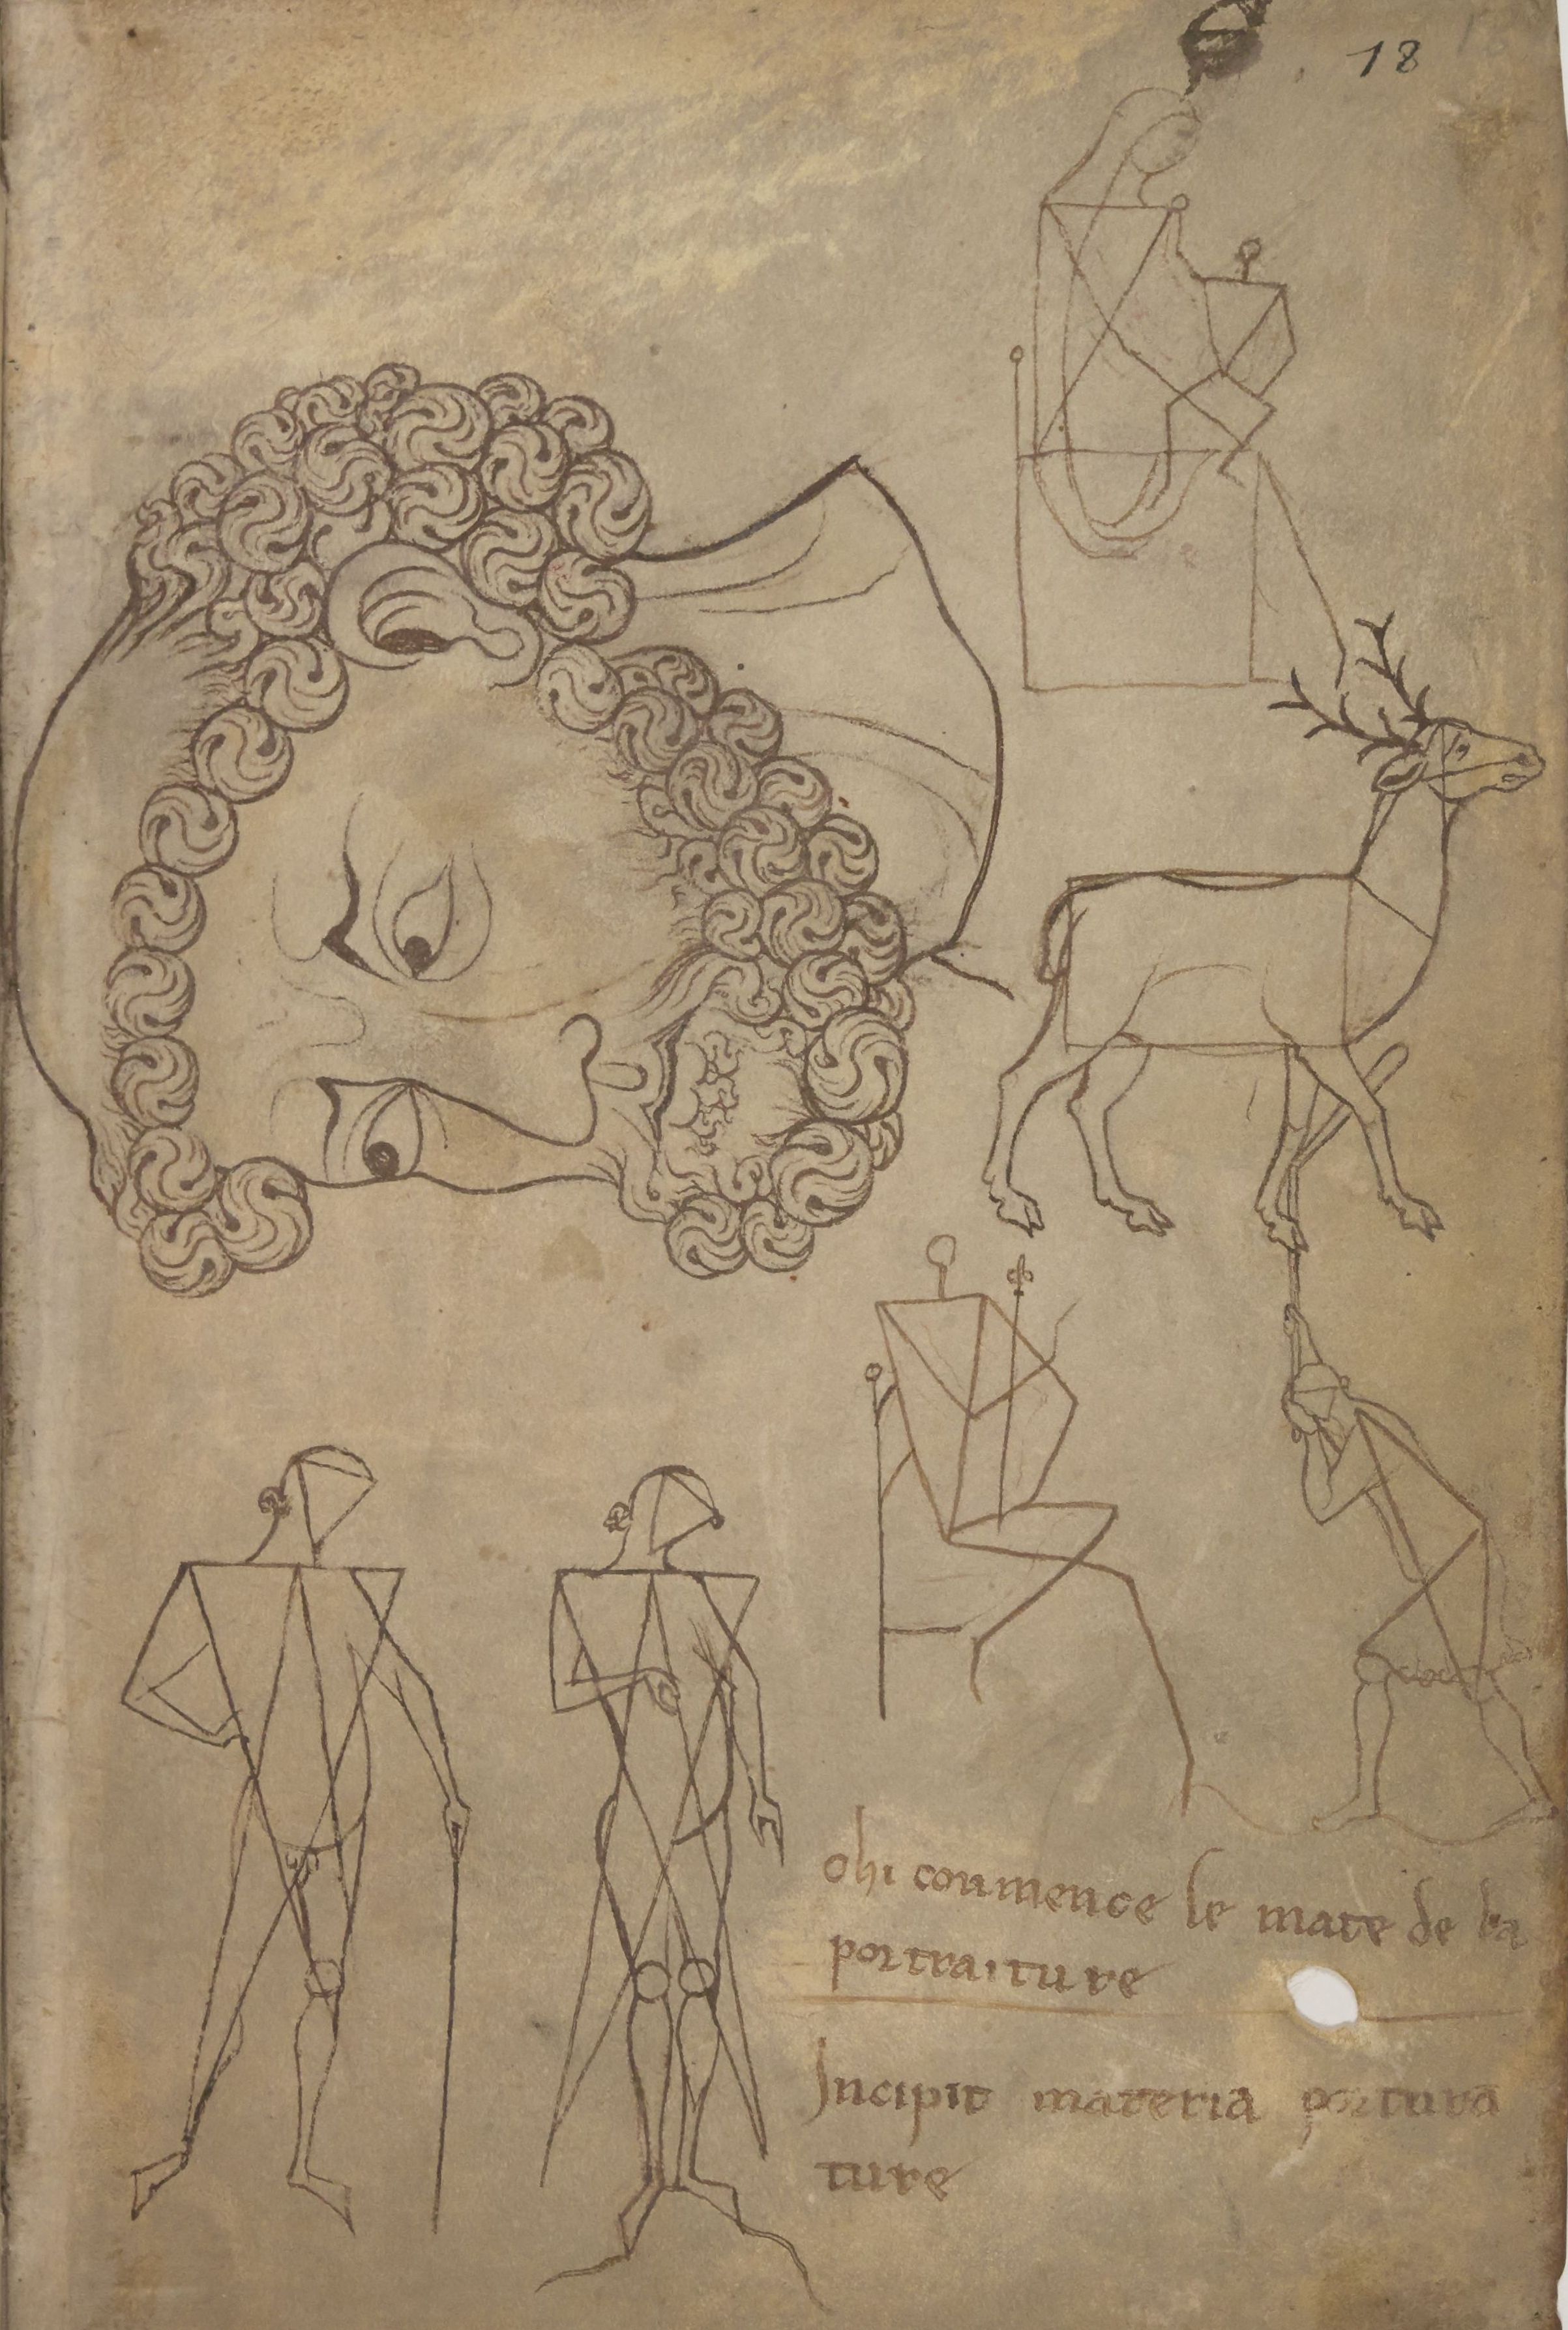 18
Chi coumence le mate de la
portraiture
Incipit materia porturā
ture